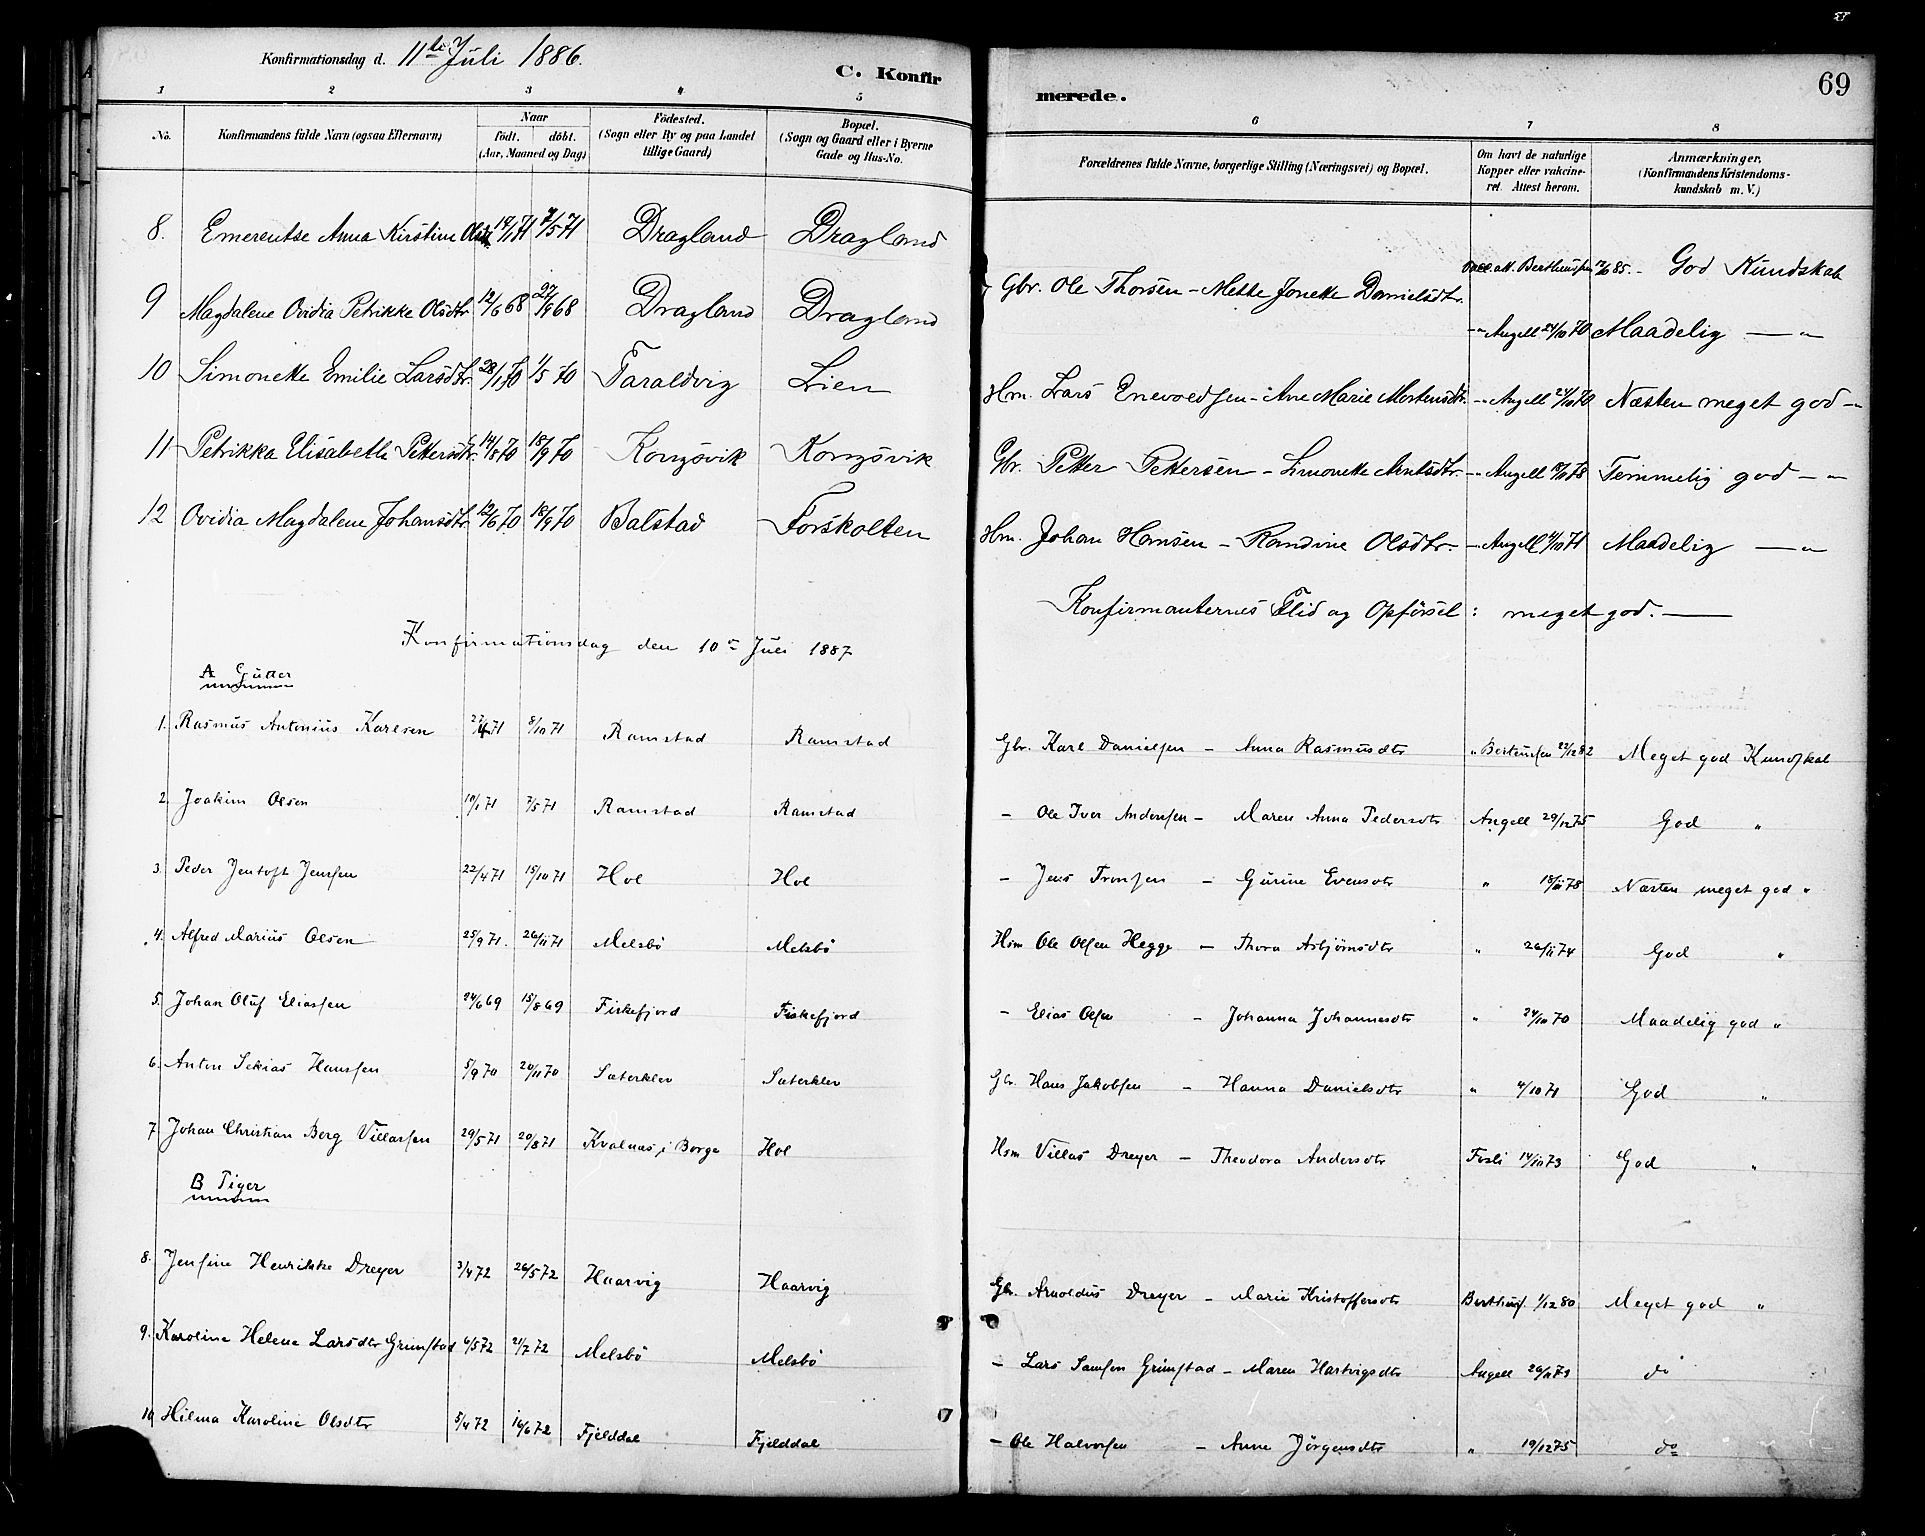 Konfirmationsdag d. 11te Juli 1886.
C. Konfirmerede.
69
1 2 3 4 5 6 7 8
No. Konfirmandens fulde Navn (ogsaa Efternavn) Naar født. døbt. (Aar, Maaned og Dag) Fødested. (Sogn eller By og paa Landet tillige Gaard) Bopæl. (Sogn og Gaard eller i Byerne Gade og Hus-No. Forældrenes fulde Navne, borgerlige Stilling (Næringsvei) og Bopæl. Om havt de naturlige Kopper eller vakcineret. Attest herom. Anmærkninger. (Konfirmandens Kristendomskundskab m. V.)
8. Emerentse Anna Kirstine 19/1 71 7/5 71 Dragland Dragland Gbr. Ole Thorsen - Mette Jonette Danielsdtr. att. Bertheussen 85. - God Kundskab
9 Magdalene Ovidia Petrikke Olsdtr 12/6 68 27/9 68 Dragland Dragland -"- Angell 24/10 70 Maadelig — "
10 Simonette Emilie Larsdtr. 28/1 70 1/5 70 Taraldvig Lien Hm. Lars Enevoldsen - Ane Marie Mortensdtr. -"- Angell 24/10 70 Næsten meget god - "
11 Petrikka Elisabeth Pettersdtr. 14/8 70 18/9 70 Kongsvik Kongsvik Gbr. Petter Pettersen - Simonette Arntsdtr. -"- Angell 78 Temmelig god - "
12 Ovidia Magdalene Johansdtr. 12/6 70 18/9 70 Balstad Forskolten Hm. Johan Hansen - Randine Olsdtr. -"- Angell 4/10 71 Maadelig — "
Konfirmanternes Flid og Opførsel: meget god. —
Konfirmationsdag den 10de Juli 1887
A Gutter
1. Rasmus Antonius Karlsen 27/4 71 8/10 71 Ramstad Ramstad Gbr. Karl Danielsen - Anna Rasmusdtr " Berteussen 22/12 82 Meget god Kundskab
2. Joakim Olsen 10/1 71 7/5 71 Ramstad Ramstad - Ole Iver Andersen - Maren Anna Pedersdtr Angell 29/12 75 God "
3. Peder Jentoft Jensen 22/4 71 15/10 71 Hol Hol - Jens Tronsen - Gurine Evensdtr " 18/11 78 Næsten meget god "
4. Alfred Marius Olsen 25/9 71. 26/11 71 Melsbø Melsbø Hsm Ole Olsen Hegge - Thora Asbjørnsdtr " 26/11 74 God "
5. Johan Oluf Eliassen 24/6 69 15/8 69 Fiskefjord Fiskefjord - Elias Olsen - Johanna Johannesdtr " 24/10 70 Maadelig god "
6. Anton Sekias Hanssen 5/9 70 20/11 70 Sæterklev Sæterklev Gbr. Hans Jakobsen - Hanna Danielsdtr " 4/10 71 God "
7 Johan Christian Berg Villassen 29/5 71 20/8 71 Kvalnæs i Borge Hol Hsm Villas Dreyer - Theodora Andersdtr Fosli 14/10 73 God "
B Piger
8. Jensine Henrikke Dreyer 3/4 72 26/5 72 Haarvig Haarvig Gbr. Arnoldus Dreyer - Marie Kristoffersdtr Bertheuss. 1/12 80 Meget god "
9. Karoline Helene Larsdtr Grimstad 6/5 72 21/7 72 Melsbø Melsbø - Lars Samsen Grimstad - Maren Hartvigsdtr Angell 26/11 73 do
10 Hilma Karoline Olsdtr 5/4 72 16/6 72 Fjelddal Fjelddal - Ole Halvorsen - Anne Jørgensdtr " 19/12 75 do